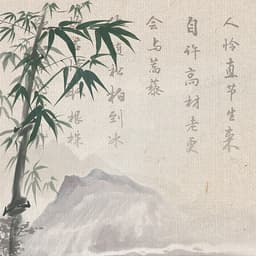 人怜直节生来
自许高材老更
会与蒿藜
松柏到冰
根株